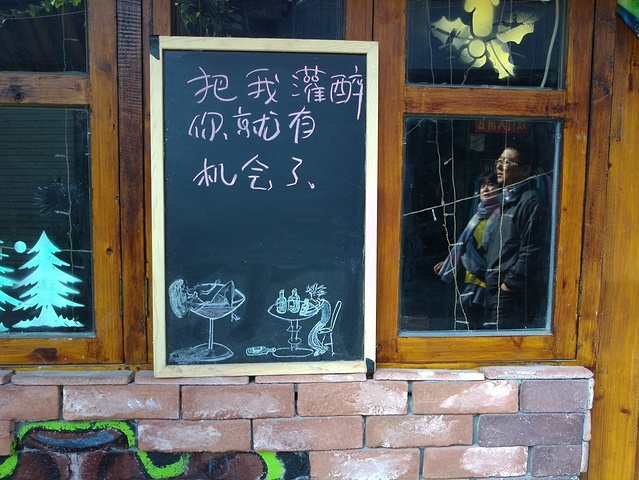 把我灌醉
你就有
机会了、